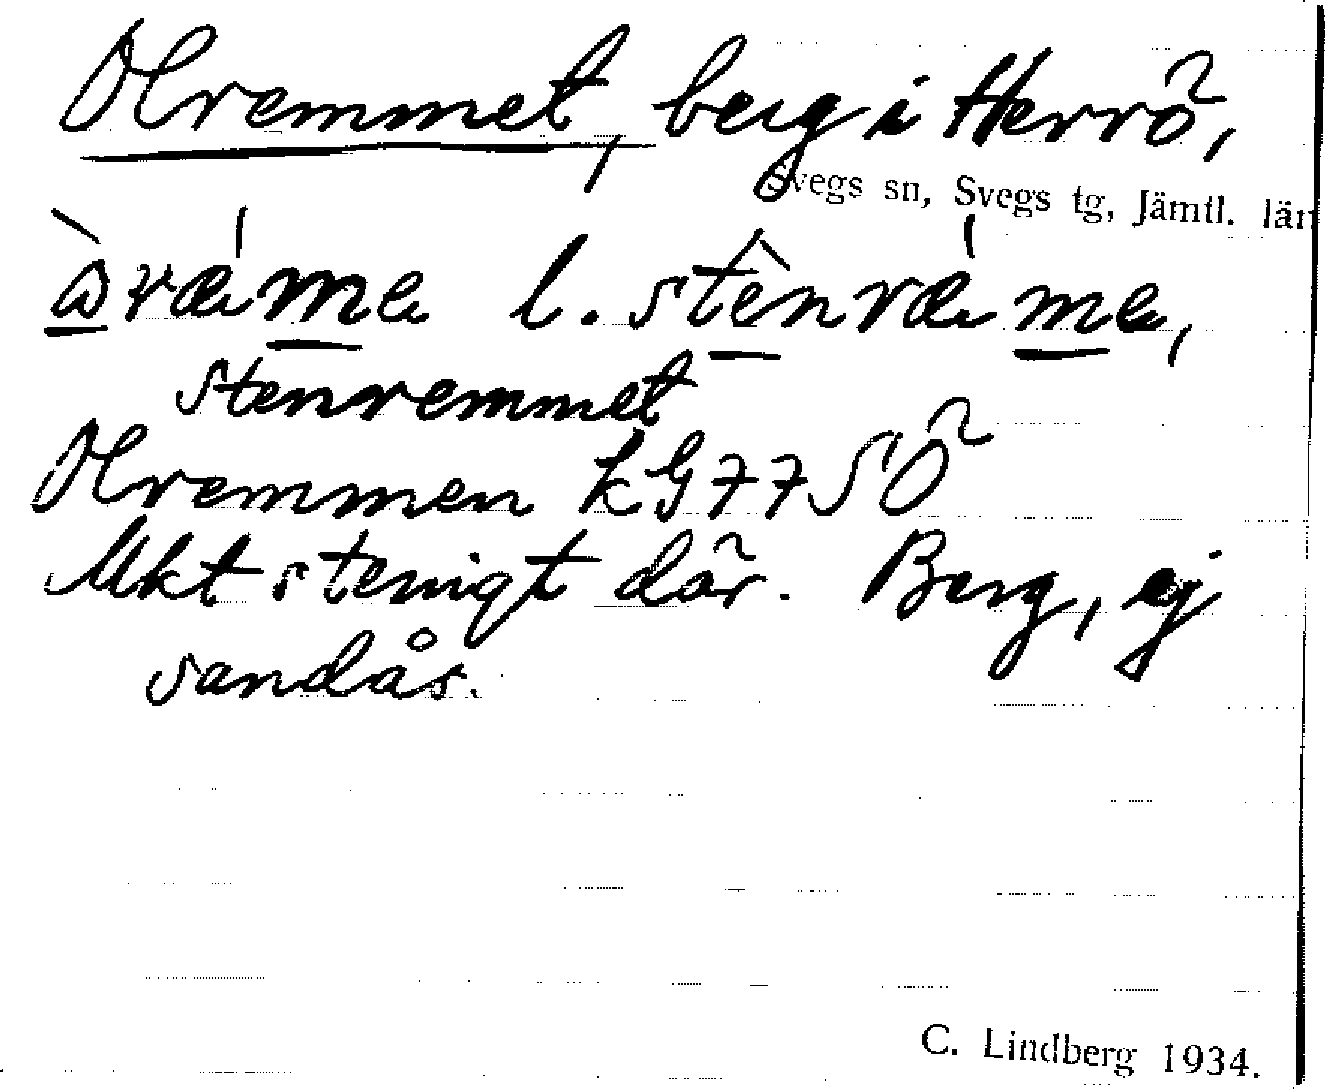 Olremmet, berg i Herrö,
Svegs sn, Svegs tg, Jämtl. län
l.
stenremmet
Olremmen kG77SÖ
Mkt stenigt där. Berg, ej
sandås.
C. Lindberg 1934.